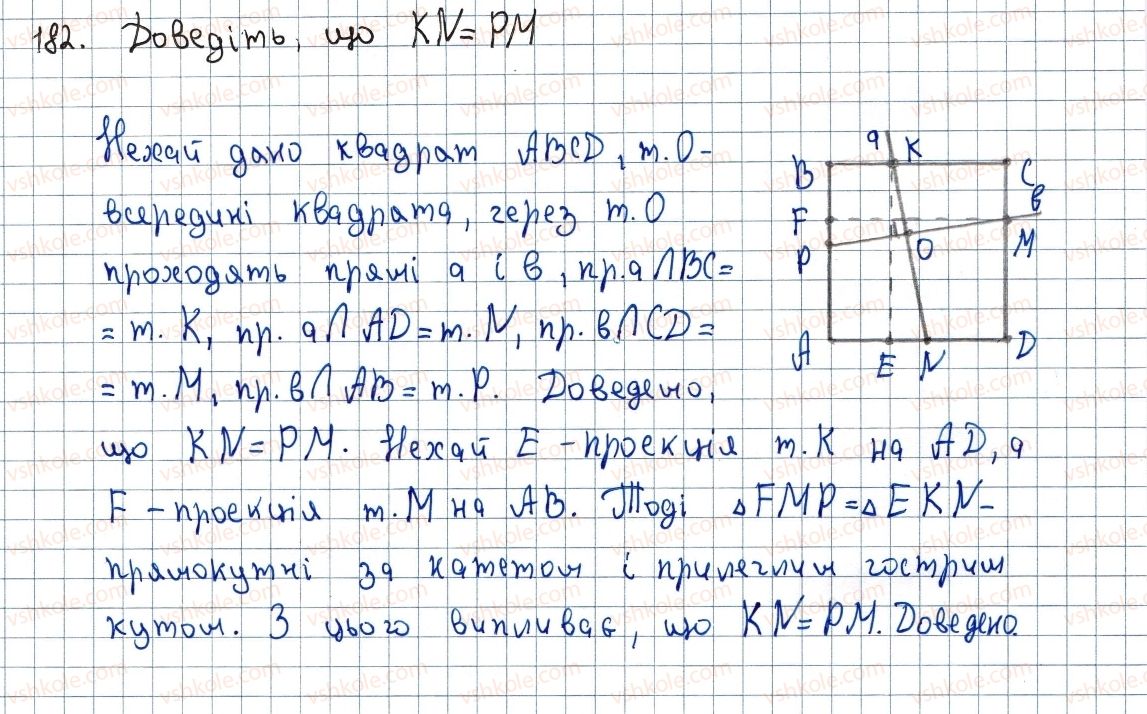 182. Доведіть, що KN = PM
Нехай дано квадрат ABCD, т. O -
всередині квадрата, через т. O
проходять прямі a і b, пр. a ∩ BC =
= т. K, пр. a ∩ AD = т. N, пр. b ∩ CD =
= т. M, пр. b ∩ AB = т. P. Доведено,
що KN = PM. Нехай E - проекція т. K на AD, а
F - проекція т. M на AB. Тоді ▵FMP = ▵EKN -
прямокутні за катетом і прилеглим гострим
кутом. З цього випливає, що KN = PM. Доведено.
a K
B C
F b
P O M
A E N D